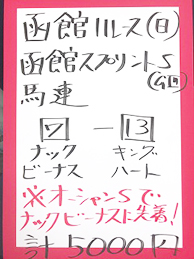 函館11レース(日)
函館スプリントS
(GⅢ)
馬連
7 - 13
ナック キングス
ビーナス ハート
※オーシャンSで
ナックビーナスに先着!
計5000円